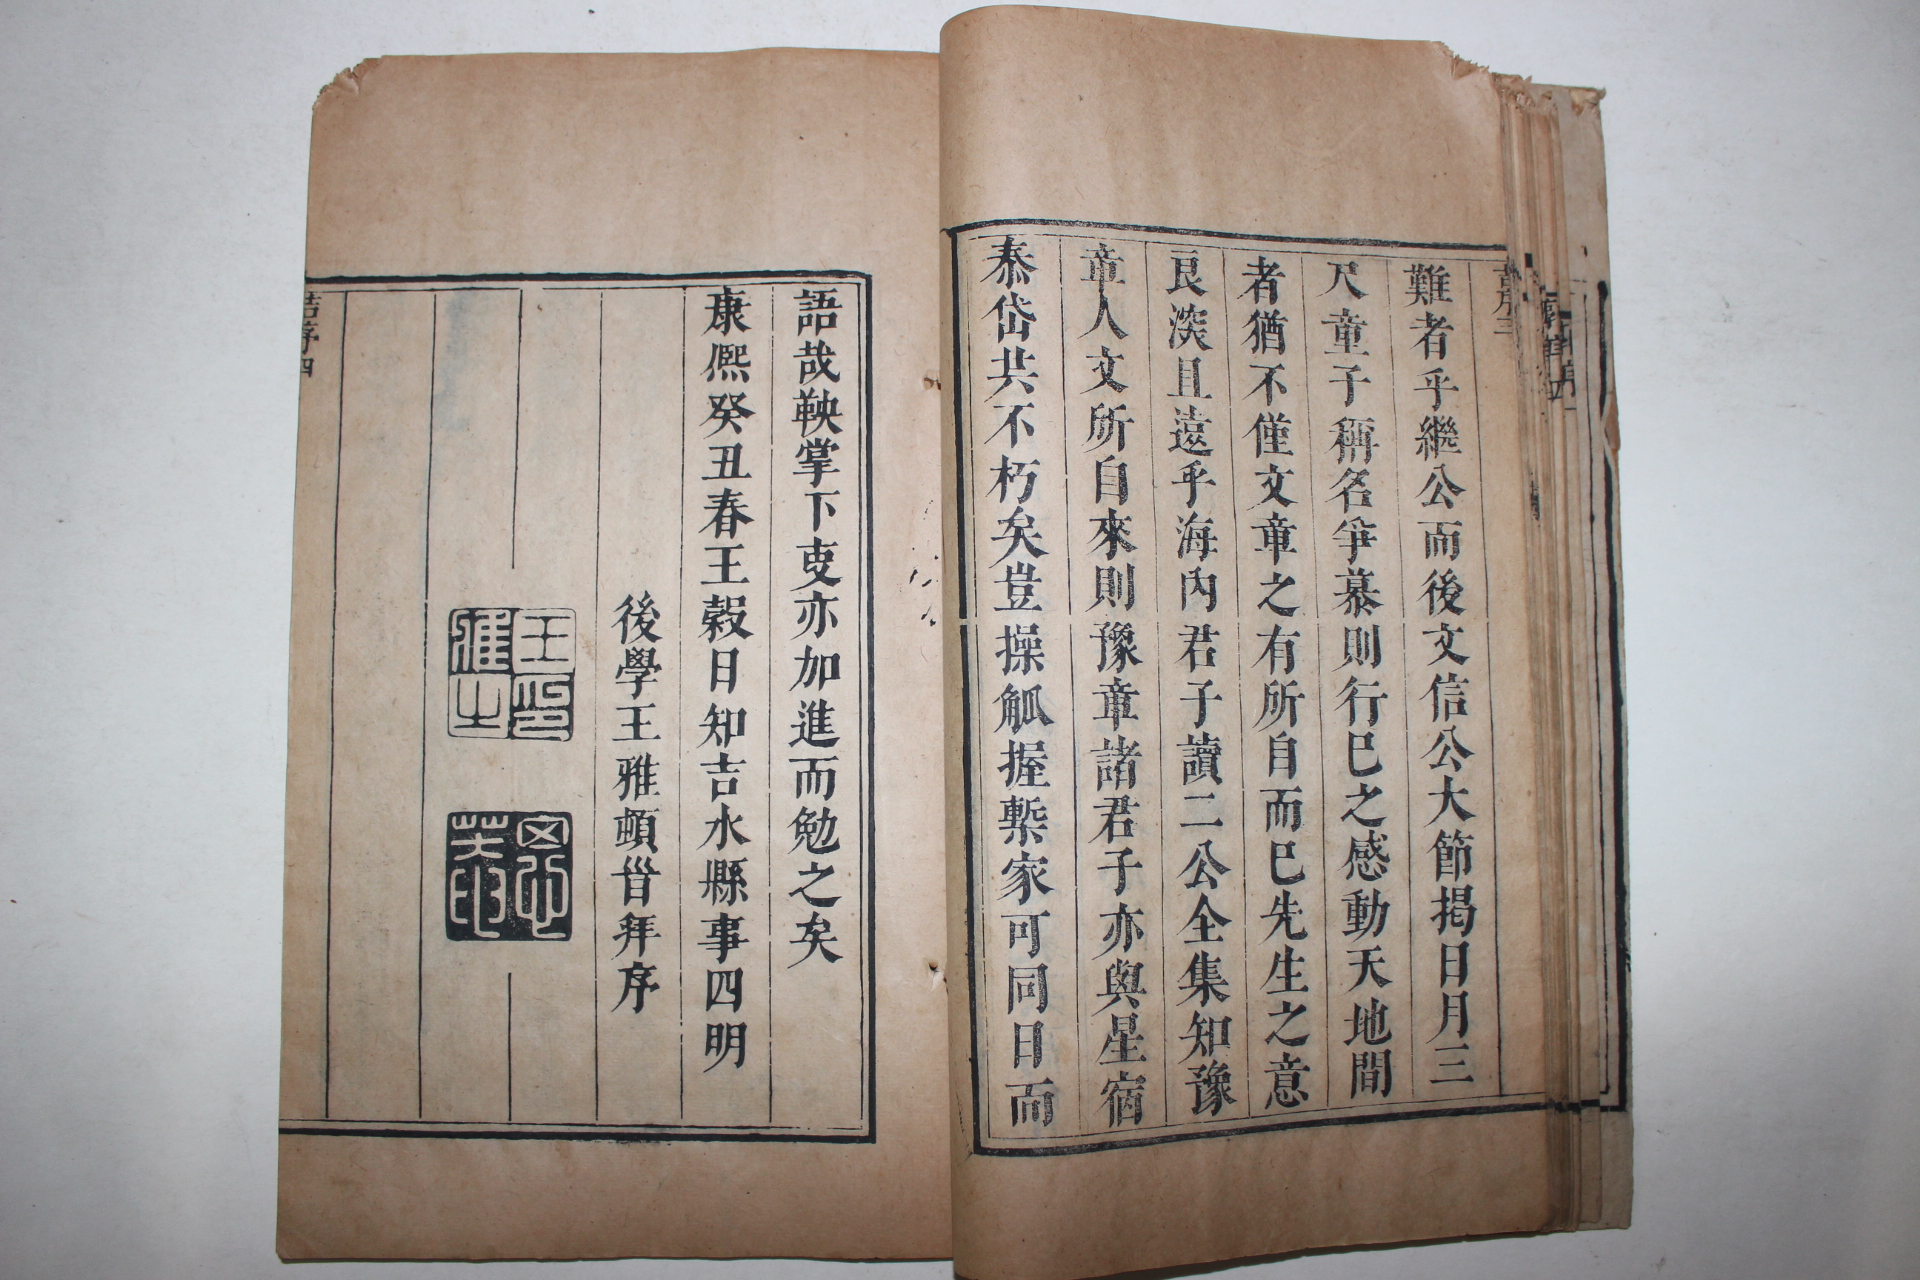 難者乎繼公而後文信公大節揭日月三
尺童子稱名爭慕則行已之感動天地間
者猶不僅文章之有所自而已先生之意
良深且遠乎海內君子讀二公全集知豫
章人文所自來則豫章諸君子亦與星宿
泰岱共不朽矣豈操觚握槧家可同日而
語哉鞅掌下吏亦加進而勉之矣
康熙癸丑春王穀日知吉水縣事四明
後學王雅頓首拜序
王雅之印
序四